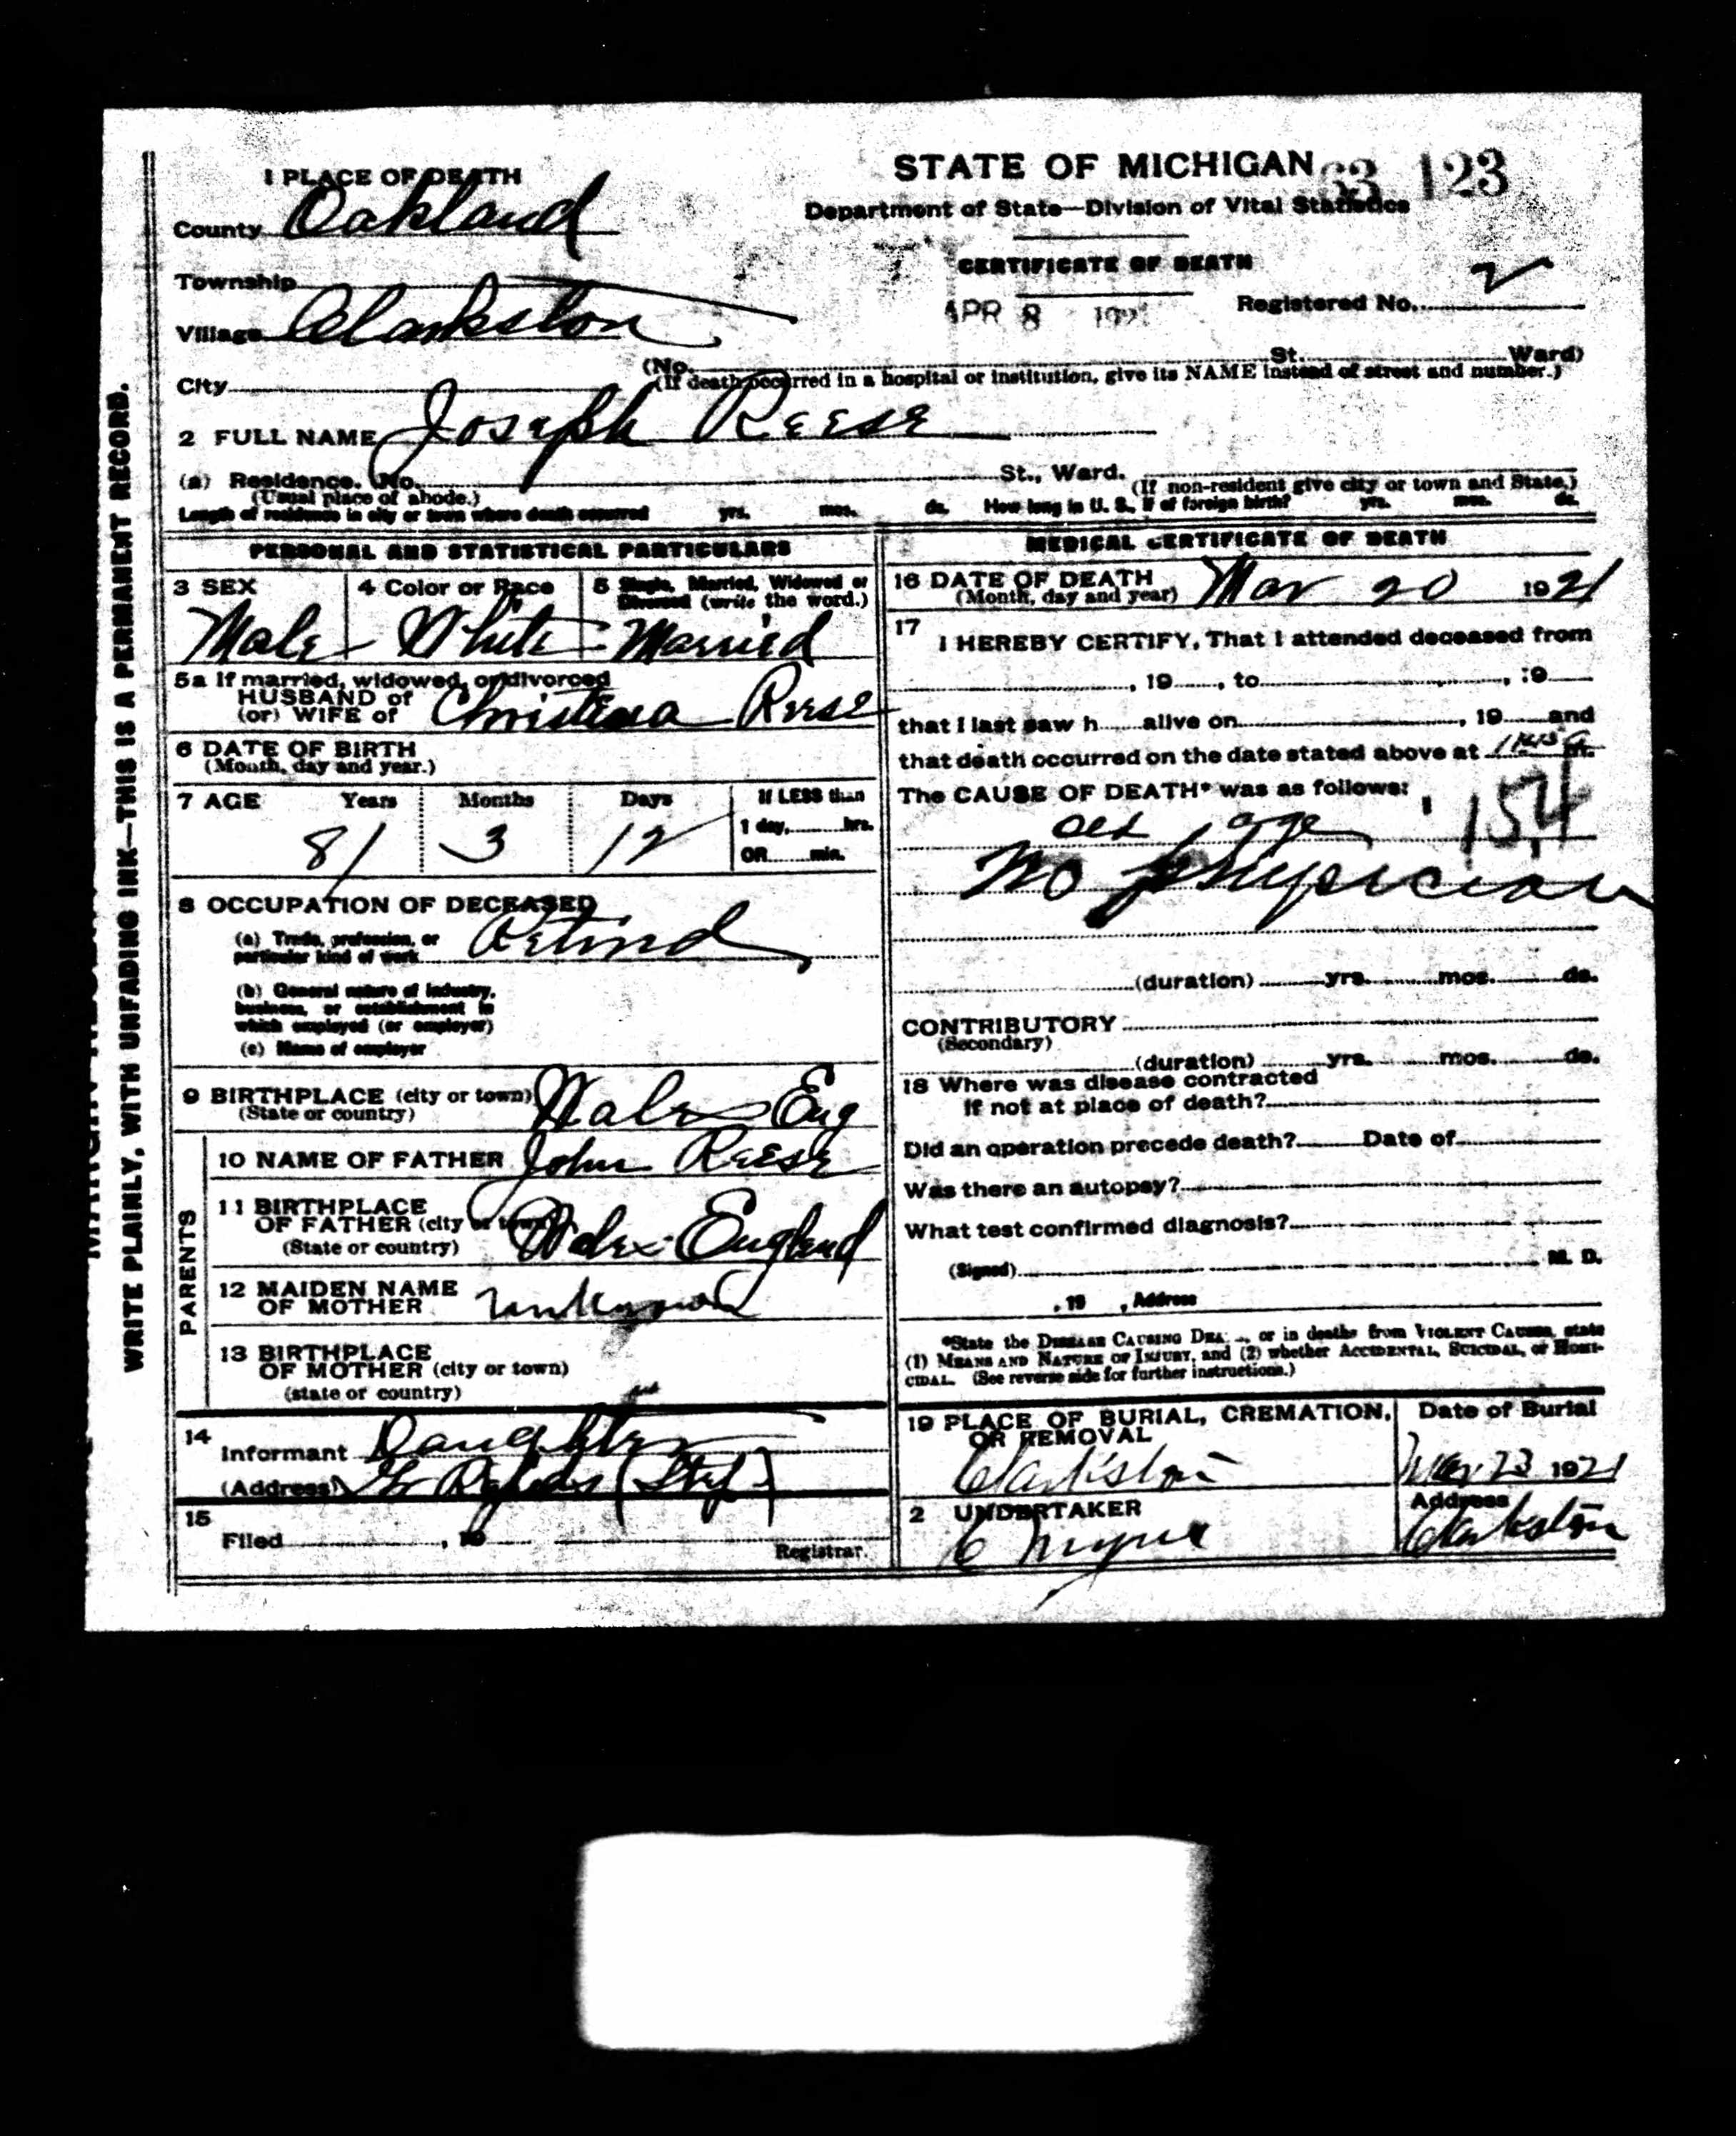 1 PLACE OF DEATH
STATE OF MICHIGAN
63 123
Department of State—Division of Vital Statistics
County Oakland
CERTIFICATE OF DEATH
Township
APR 8
Registered No. 2
Village Clarkston
City (No. St. Ward)
(If death occurred in a hospital or institution, give its NAME instead of street and number.)
2 FULL NAME Joseph Reese
(a) Residence. No. St., Ward.
(Usual place of abode.) (If non-resident give city or town and State.)
Length of residence in city or town where death occurred yrs. mos. ds. How long in U. S., if of foreign birth? yrs. mos. ds.
PERSONAL AND STATISTICAL PARTICULARS
3 SEX
Male
4 Color or Race
White
5 Single, Married, Widowed or
Divorced (write the word.)
Married
5a If married, widowed, or divorced
HUSBAND of
(or) WIFE of Christena Reese
6 DATE OF BIRTH
(Month, day and year.)
7 AGE Years Months Days If LESS than
1 day, hrs.
81 3 12
OR min.
8 OCCUPATION OF DECEASED
(a) Trade, profession, or
particular kind of work Retired
(b) General nature of industry,
business, or establishment in
which employed (or employer)
(c) Name of employer
9 BIRTHPLACE (city or town) Wales Eng
(State or country)
PARENTS
10 NAME OF FATHER John Reese
11 BIRTHPLACE
OF FATHER (city or town) Wales England
(State or country)
12 MAIDEN NAME
OF MOTHER unknown
13 BIRTHPLACE
OF MOTHER (city or town)
(state or country)
14
Informant Daughter
(Address)
15
Filed , 19
Registrar.
MEDICAL CERTIFICATE OF DEATH
16 DATE OF DEATH
(Month, day and year) Mar 20 1921
17
I HEREBY CERTIFY, That I attended deceased from
, 19 , to , 19
that I last saw h alive on , 19 and
that death occurred on the date stated above at m.
The CAUSE OF DEATH* was as follows:
old age 154
no physician
(duration) yrs. mos. ds.
CONTRIBUTORY
(Secondary)
(duration) yrs. mos. ds.
18 Where was disease contracted
if not at place of death?
Did an operation precede death? Date of
Was there an autopsy?
What test confirmed diagnosis?
(Signed) M. D.
, 19 , Address
*State the DISEASE CAUSING DEA , or in deaths from VIOLENT CAUSES, state
(1) MEANS AND NATURE OF INJURY, and (2) whether ACCIDENTAL, SUICIDAL, or HOMI-
CIDAL. (See reverse side for further instructions.)
19 PLACE OF BURIAL, CREMATION,
OR REMOVAL
Clarkston
Date of Burial
Mar 23 1921
2 UNDERTAKER
Address
Clarkston
WRITE PLAINLY, WITH UNFADING INK—THIS IS A PERMANENT RECORD.